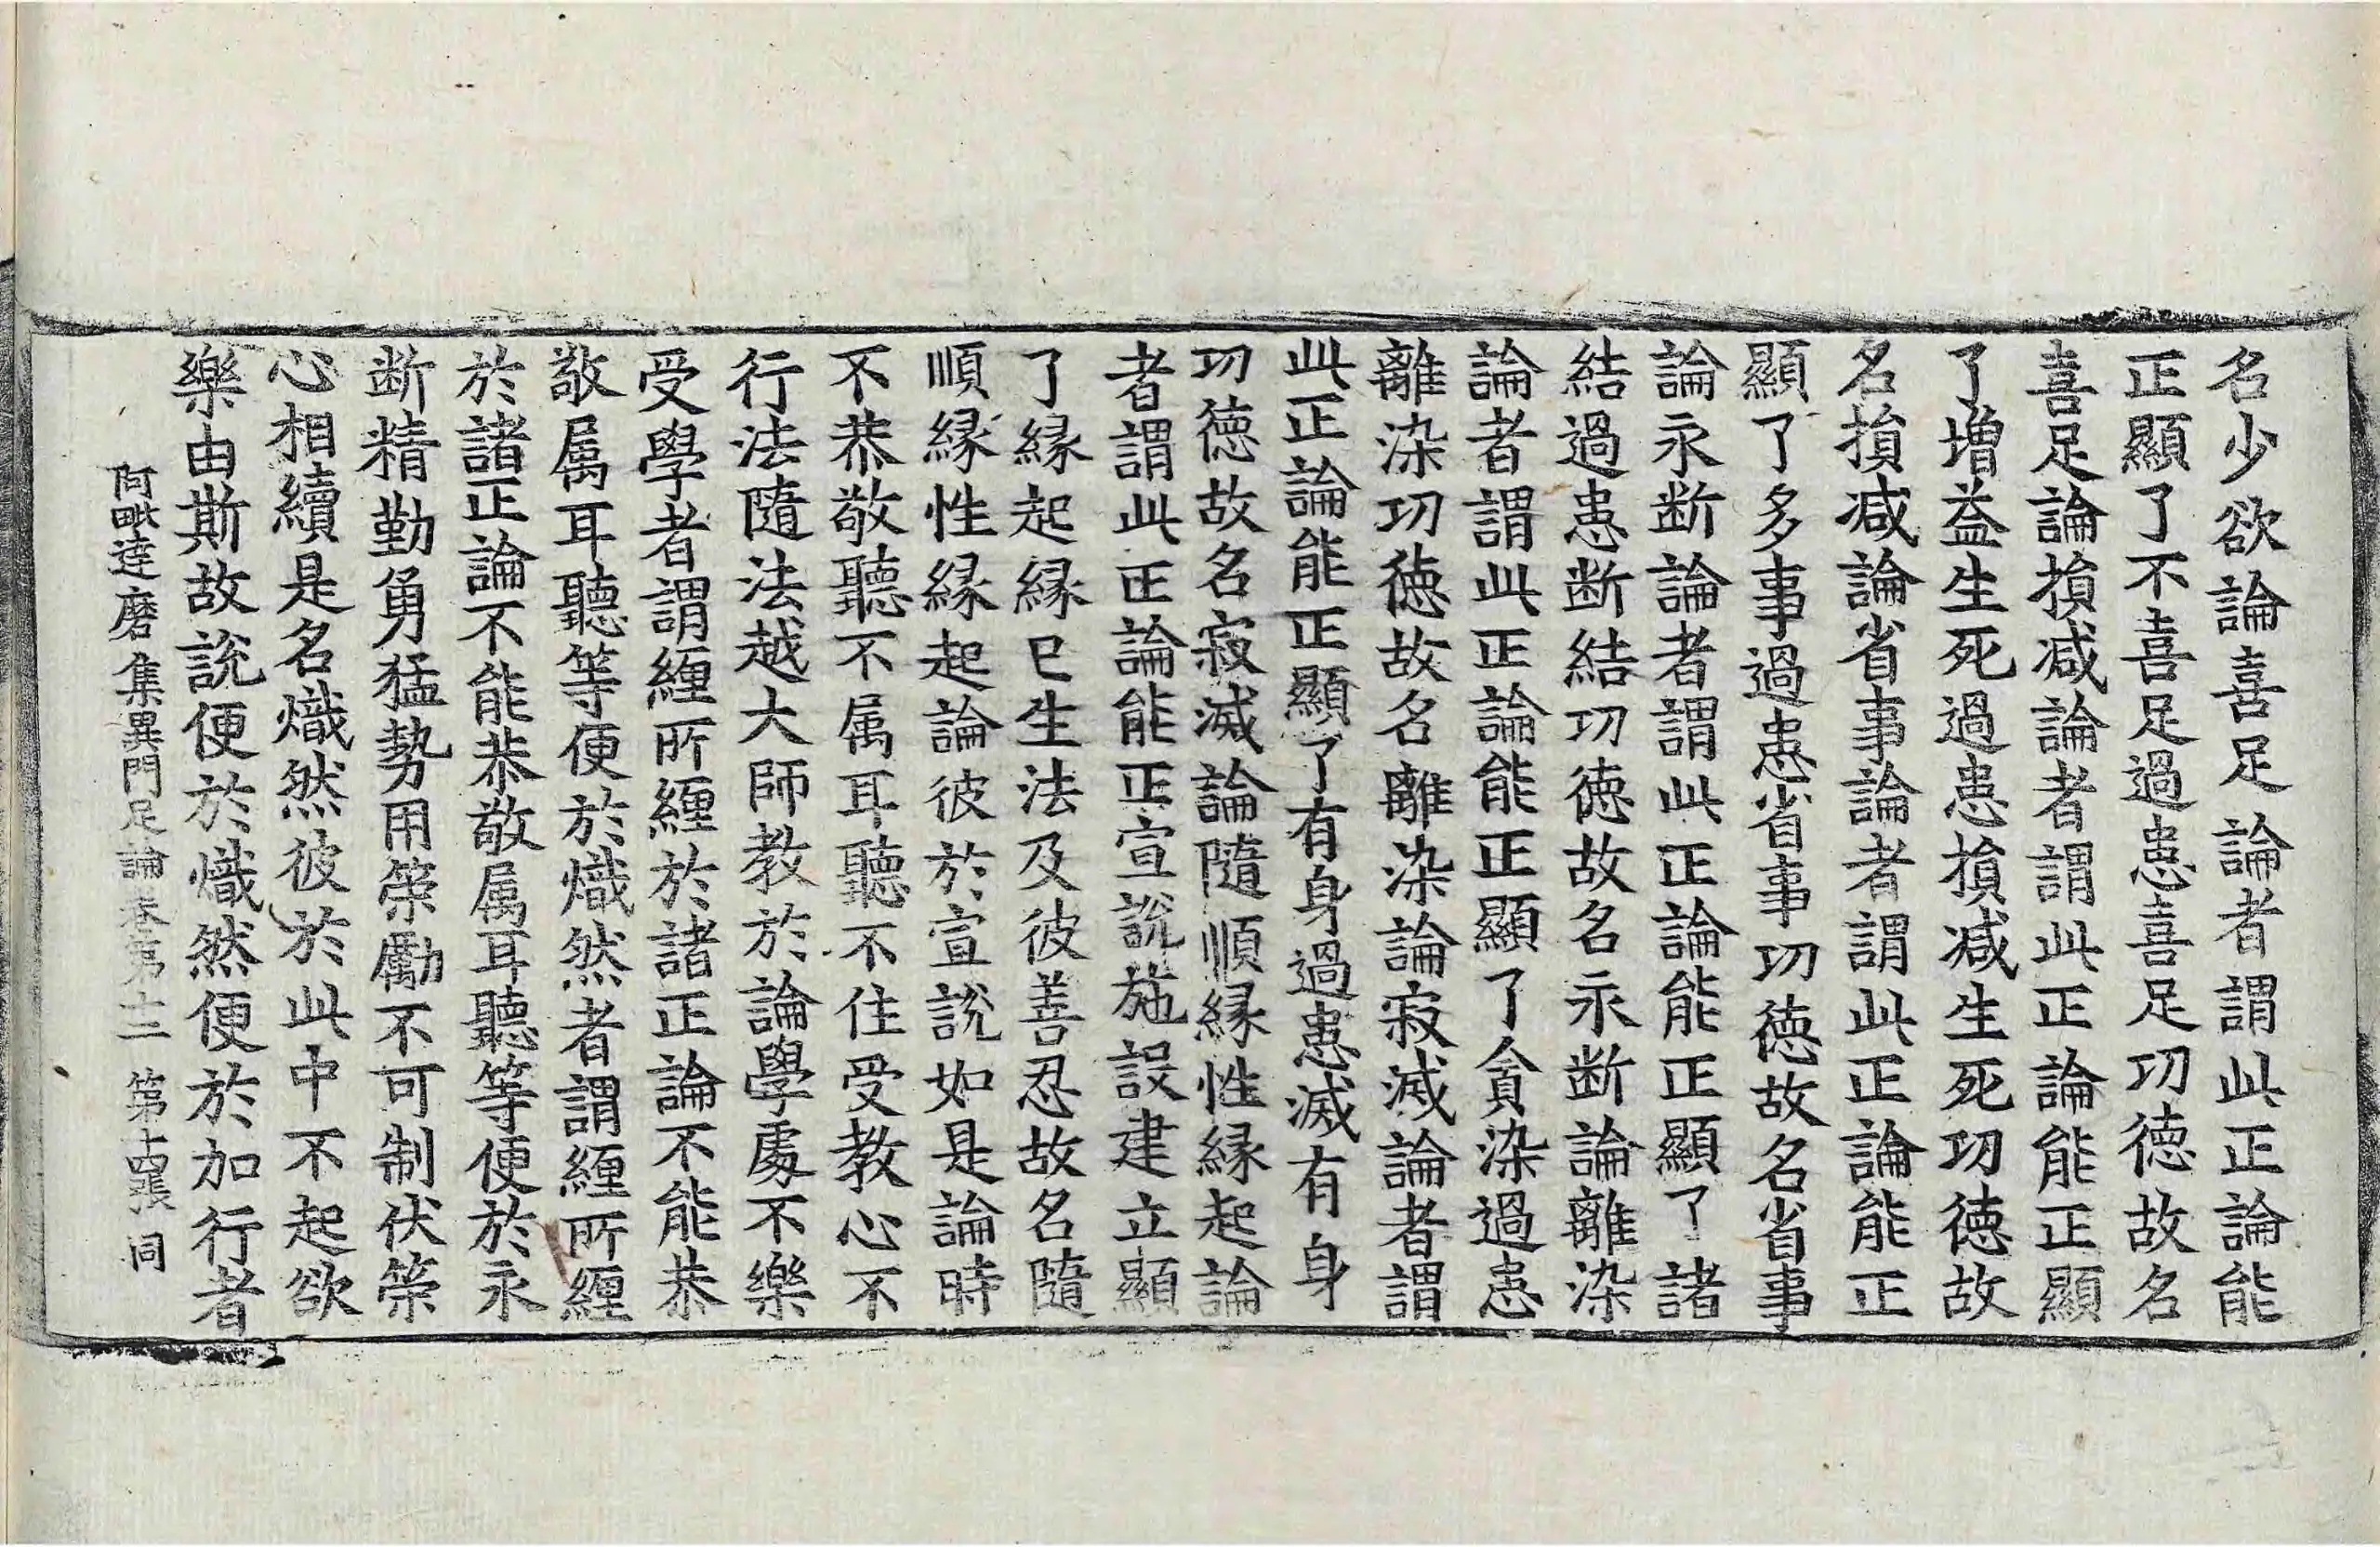 名少欲論喜足論者謂此正論能
正顯了不喜足過患喜足功徳故名
喜足論損減論者謂此正論能正顯
了増益生死過患損減生死功徳故
名損減論省事論者謂此正論能正
顯了多事過患省事功徳故名省事
論永断論者謂此正論能正顯了諸
結過患断結功徳故名永断論離染
論者謂此正論能正顯了貪染過患
離染功徳故名離染論寂滅論者謂
此正論能正顯了有身過患滅有身
功徳故名寂滅論隨順縁性縁起論
者謂此正論能正宣說施設建立顯
了縁起縁已生法及彼善忍故名隨
順縁性縁起論彼於宣說如是論時
不恭敬聽不属耳聽不住受教心不
行法隨法越大師教於論學處不樂
受學者謂纒所纒於諸正論不能恭
敬属耳聽等便於熾然者謂纒所纒
於諸正論不能恭敬属耳聽等便於永
断精勤勇猛勢用策勵不可制伏策
心相續是名熾然彼於此中不起欲
樂由斯故說便於熾然便於加行者
阿毗達磨集異門足論卷第十二 第十四張 同